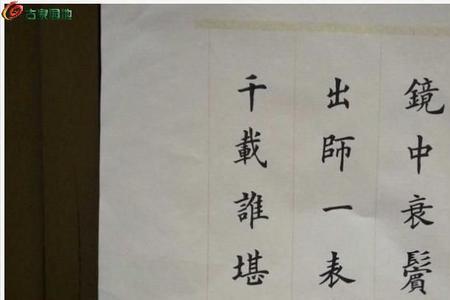 古泉园地
鏡中衰鬢
出師一表
千載誰堪